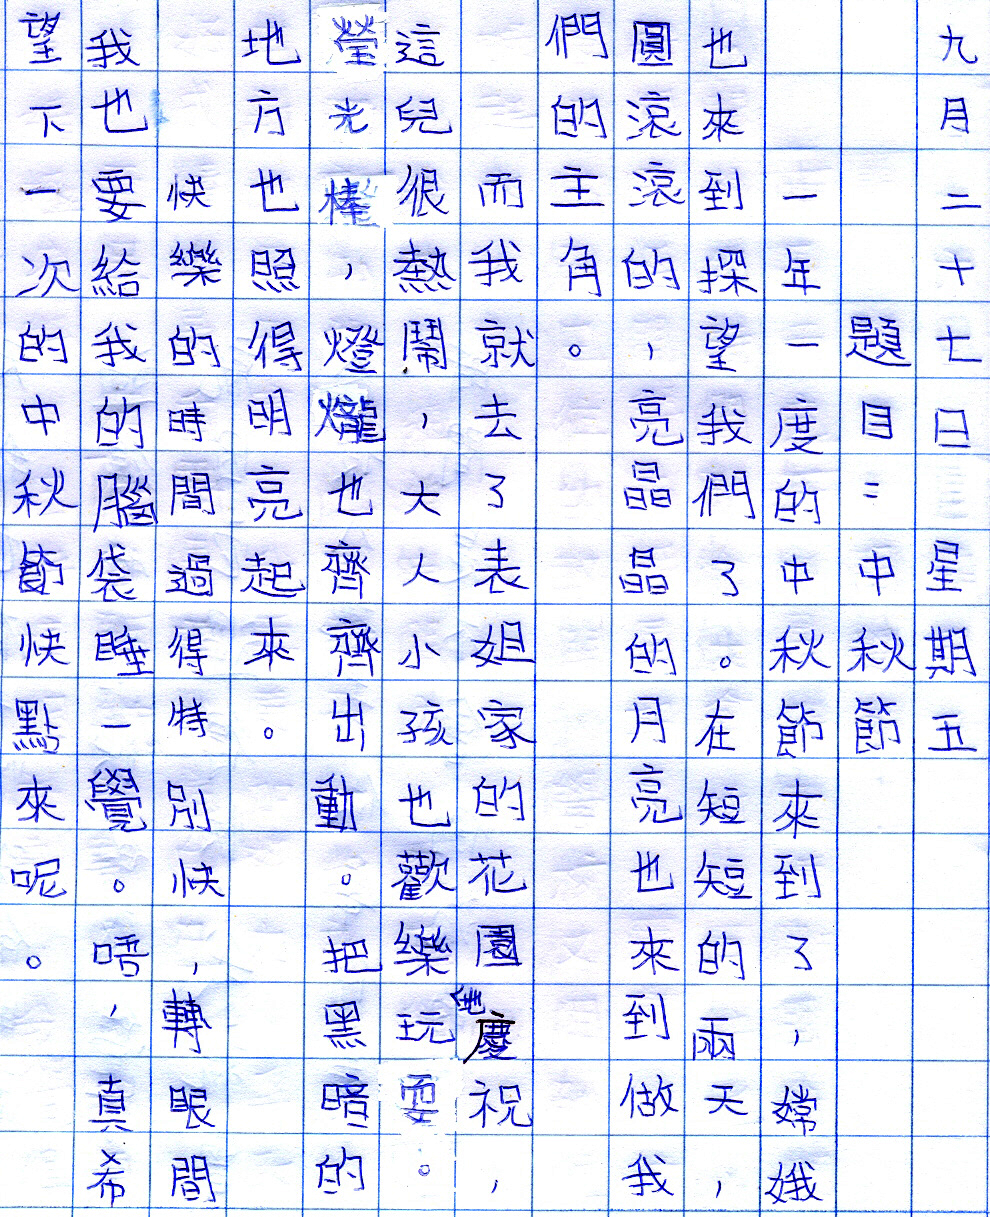 九月二十七日　星期五
題目：中秋節
一年一度的中秋節來到了，嫦娥
也來到探望我們了。在短短的兩天，
圓滾滾的，亮晶晶的月亮也來到做我
們的主角。
而我就去了表姐家的花園他慶祝，
這兒很熱鬧，大人小孩也歡樂玩耍。
瑩光棒，燈爖也齊齊出動。把黑暗的
地方也照得明亮起來。
快樂的時間過得特別快，轉眼間
我也要給我的腦袋睡一覺。唔，真希
望下一次的中秋節快點來呢。